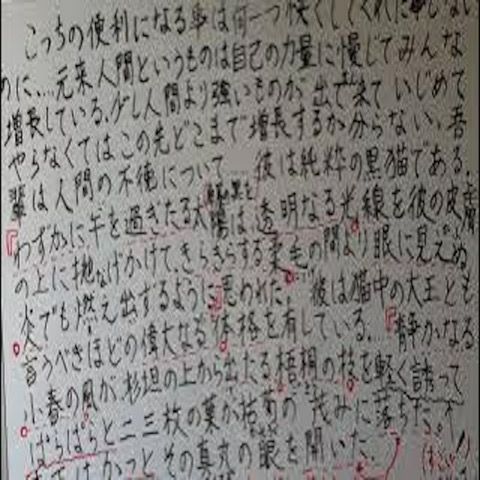 こっちの便利になる事は何一つ快くしてくれた事しない
のに、…元来人間というものは自己の力量に慢じてみんな
増長している。少し人間より強いものが出て来ていじめて
やらなくてはこの先どこまで増長するか分らない。吾
輩は人間の不徳について 彼は純粋の黒猫である。
『わずかに午を過ぎたる太陽は透明なる光線を彼の皮膚
の上に抛なげかけて、きらきらする柔毛の間より眼に見えぬ
火でも燃え出するように思われた。』彼は猫中の大王とも
言うべきほどの偉大なる体格を有している。『静かなる
小春の風が、杉垣の上から出たる梧桐の枝を軽く誘って
ばらばらと二三枚の葉が枯菊の茂みに落ちた。
はかっとその真丸の眼を開いた。